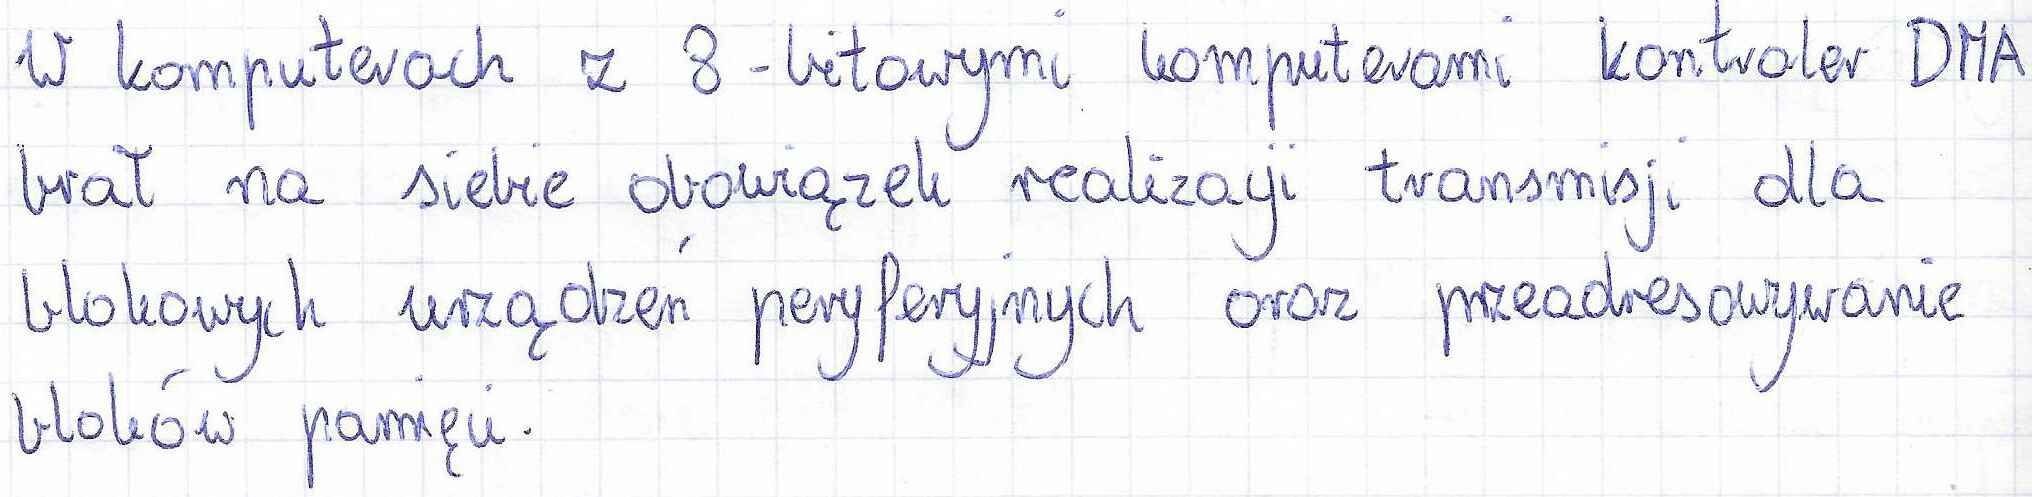 W komputerach z 8-bitowymi komputerami kontroler DMA
brał na siebie obowiązek realizacji transmisji dla
blokowych urządzeń peryferyjnych oraz przeadresowywanie
bloków pamięci.